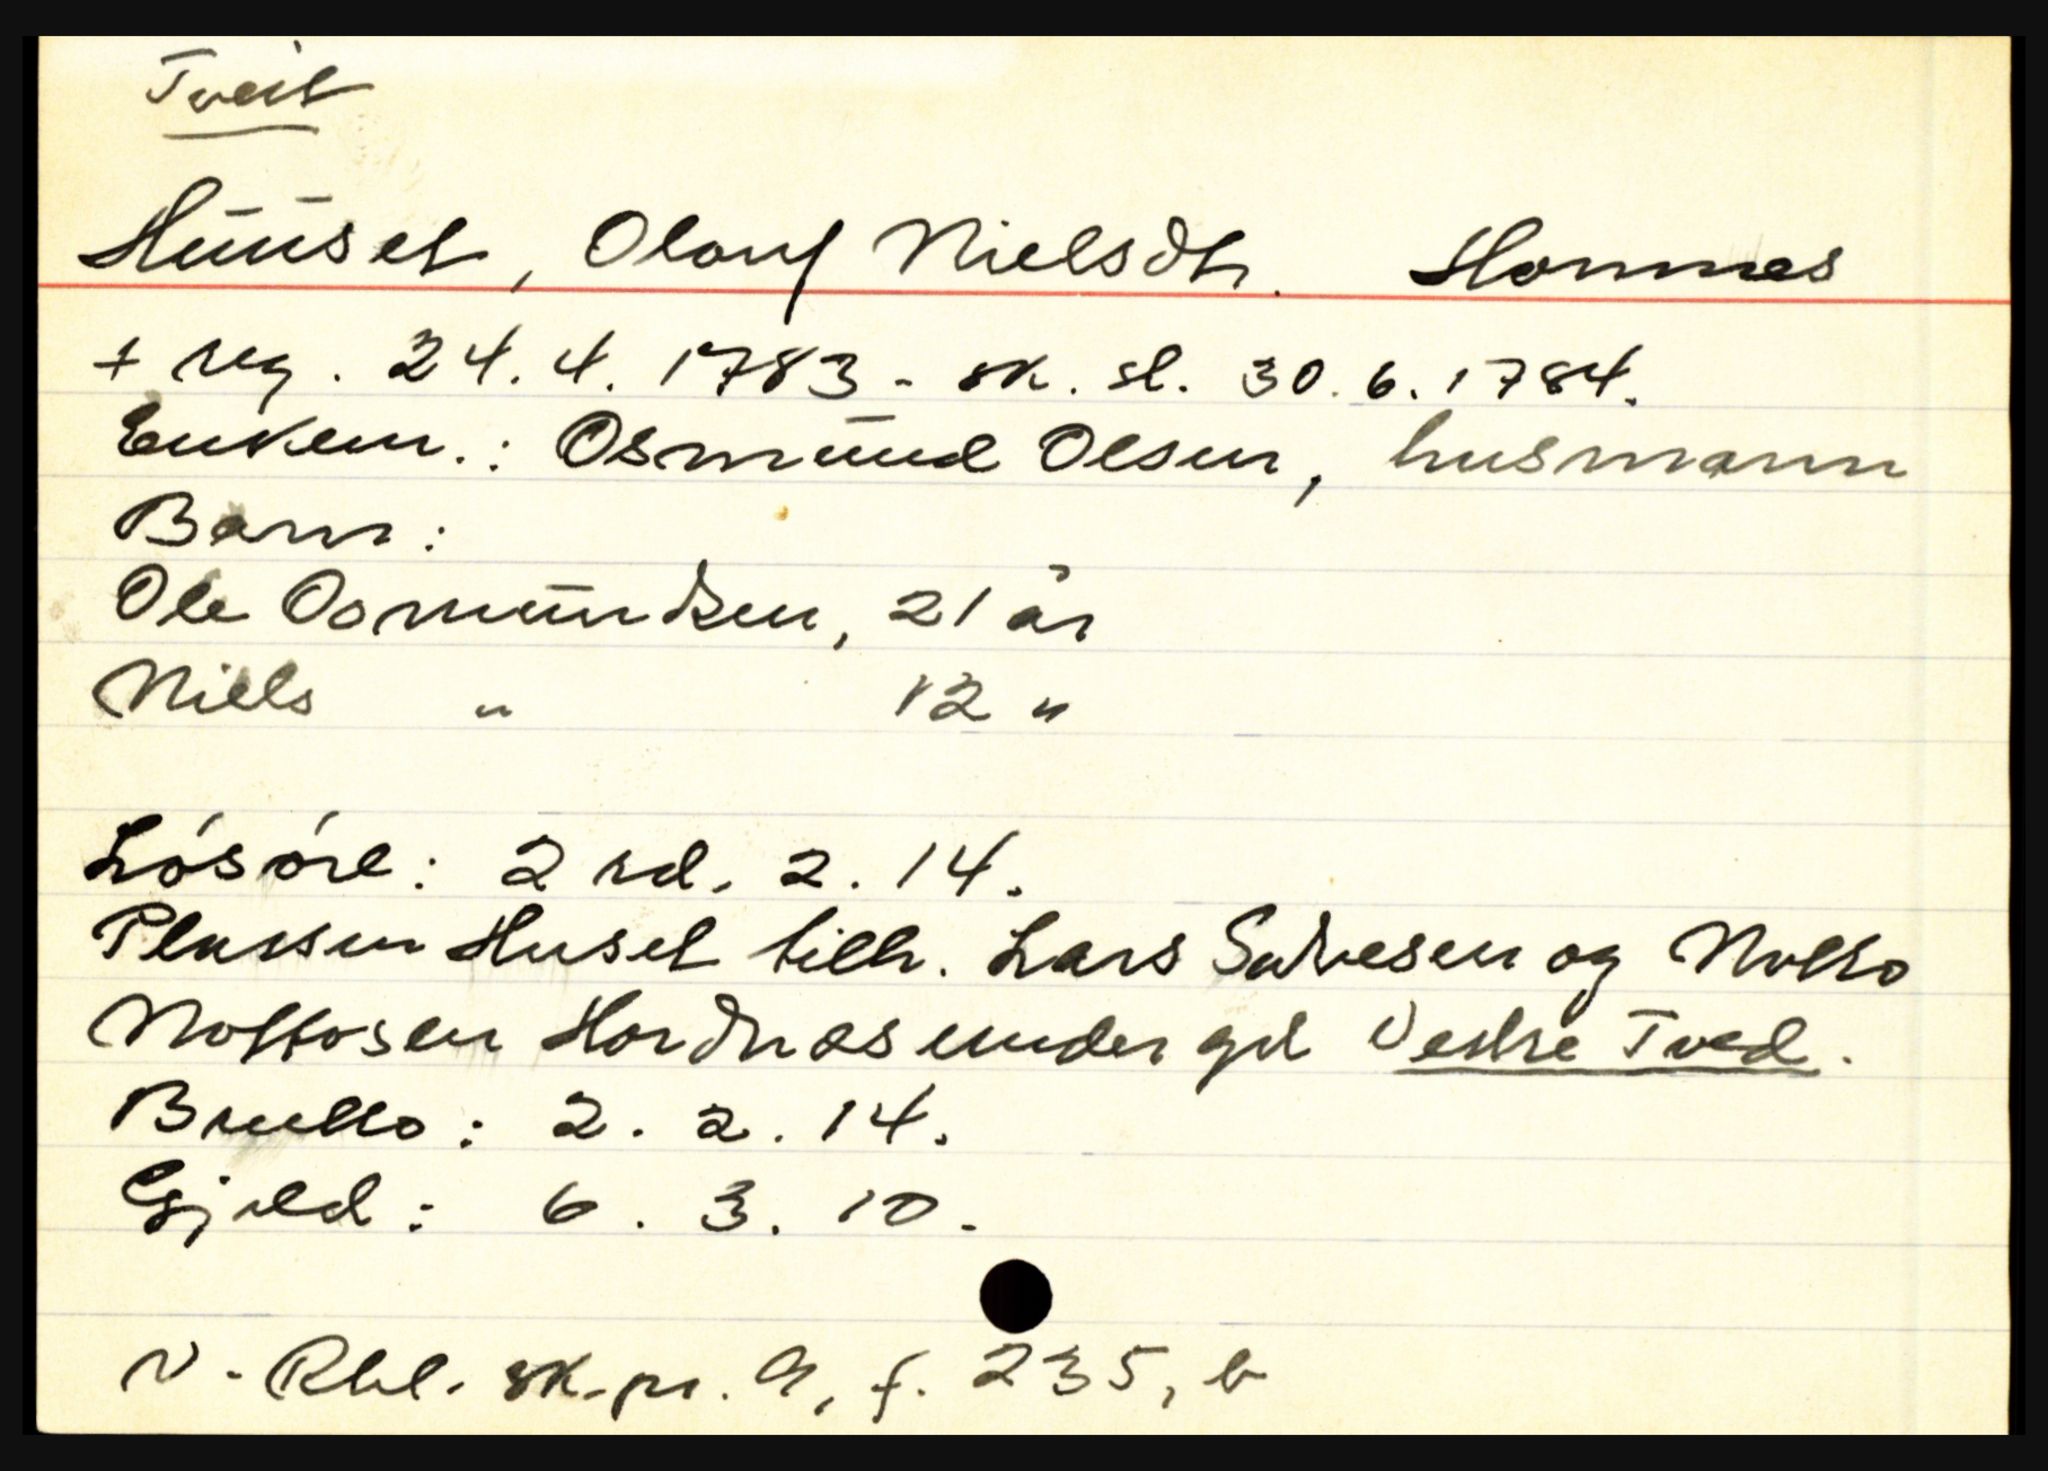 Tveit
Huuset, Olouf Nielsdtr. Homnes
+ reg. 24.4.1783 - sk. sl. 30.6.1784.
Enkem.: Osmund Olsen, husmann
Barn:
Ole Osmundsen, 21 år
Niels " 12 "
Løsøre: 2 rd. 2. 14.
Plassen Huset tilh. Lars Salvesen og Notto
Nottosen Hordnæs under gd Vestre Tved.
Brutto: 2. 2. 14.
Gjeld: 6. 3. 10.
N. Rbl. sk.pr. 9, f. 235, b